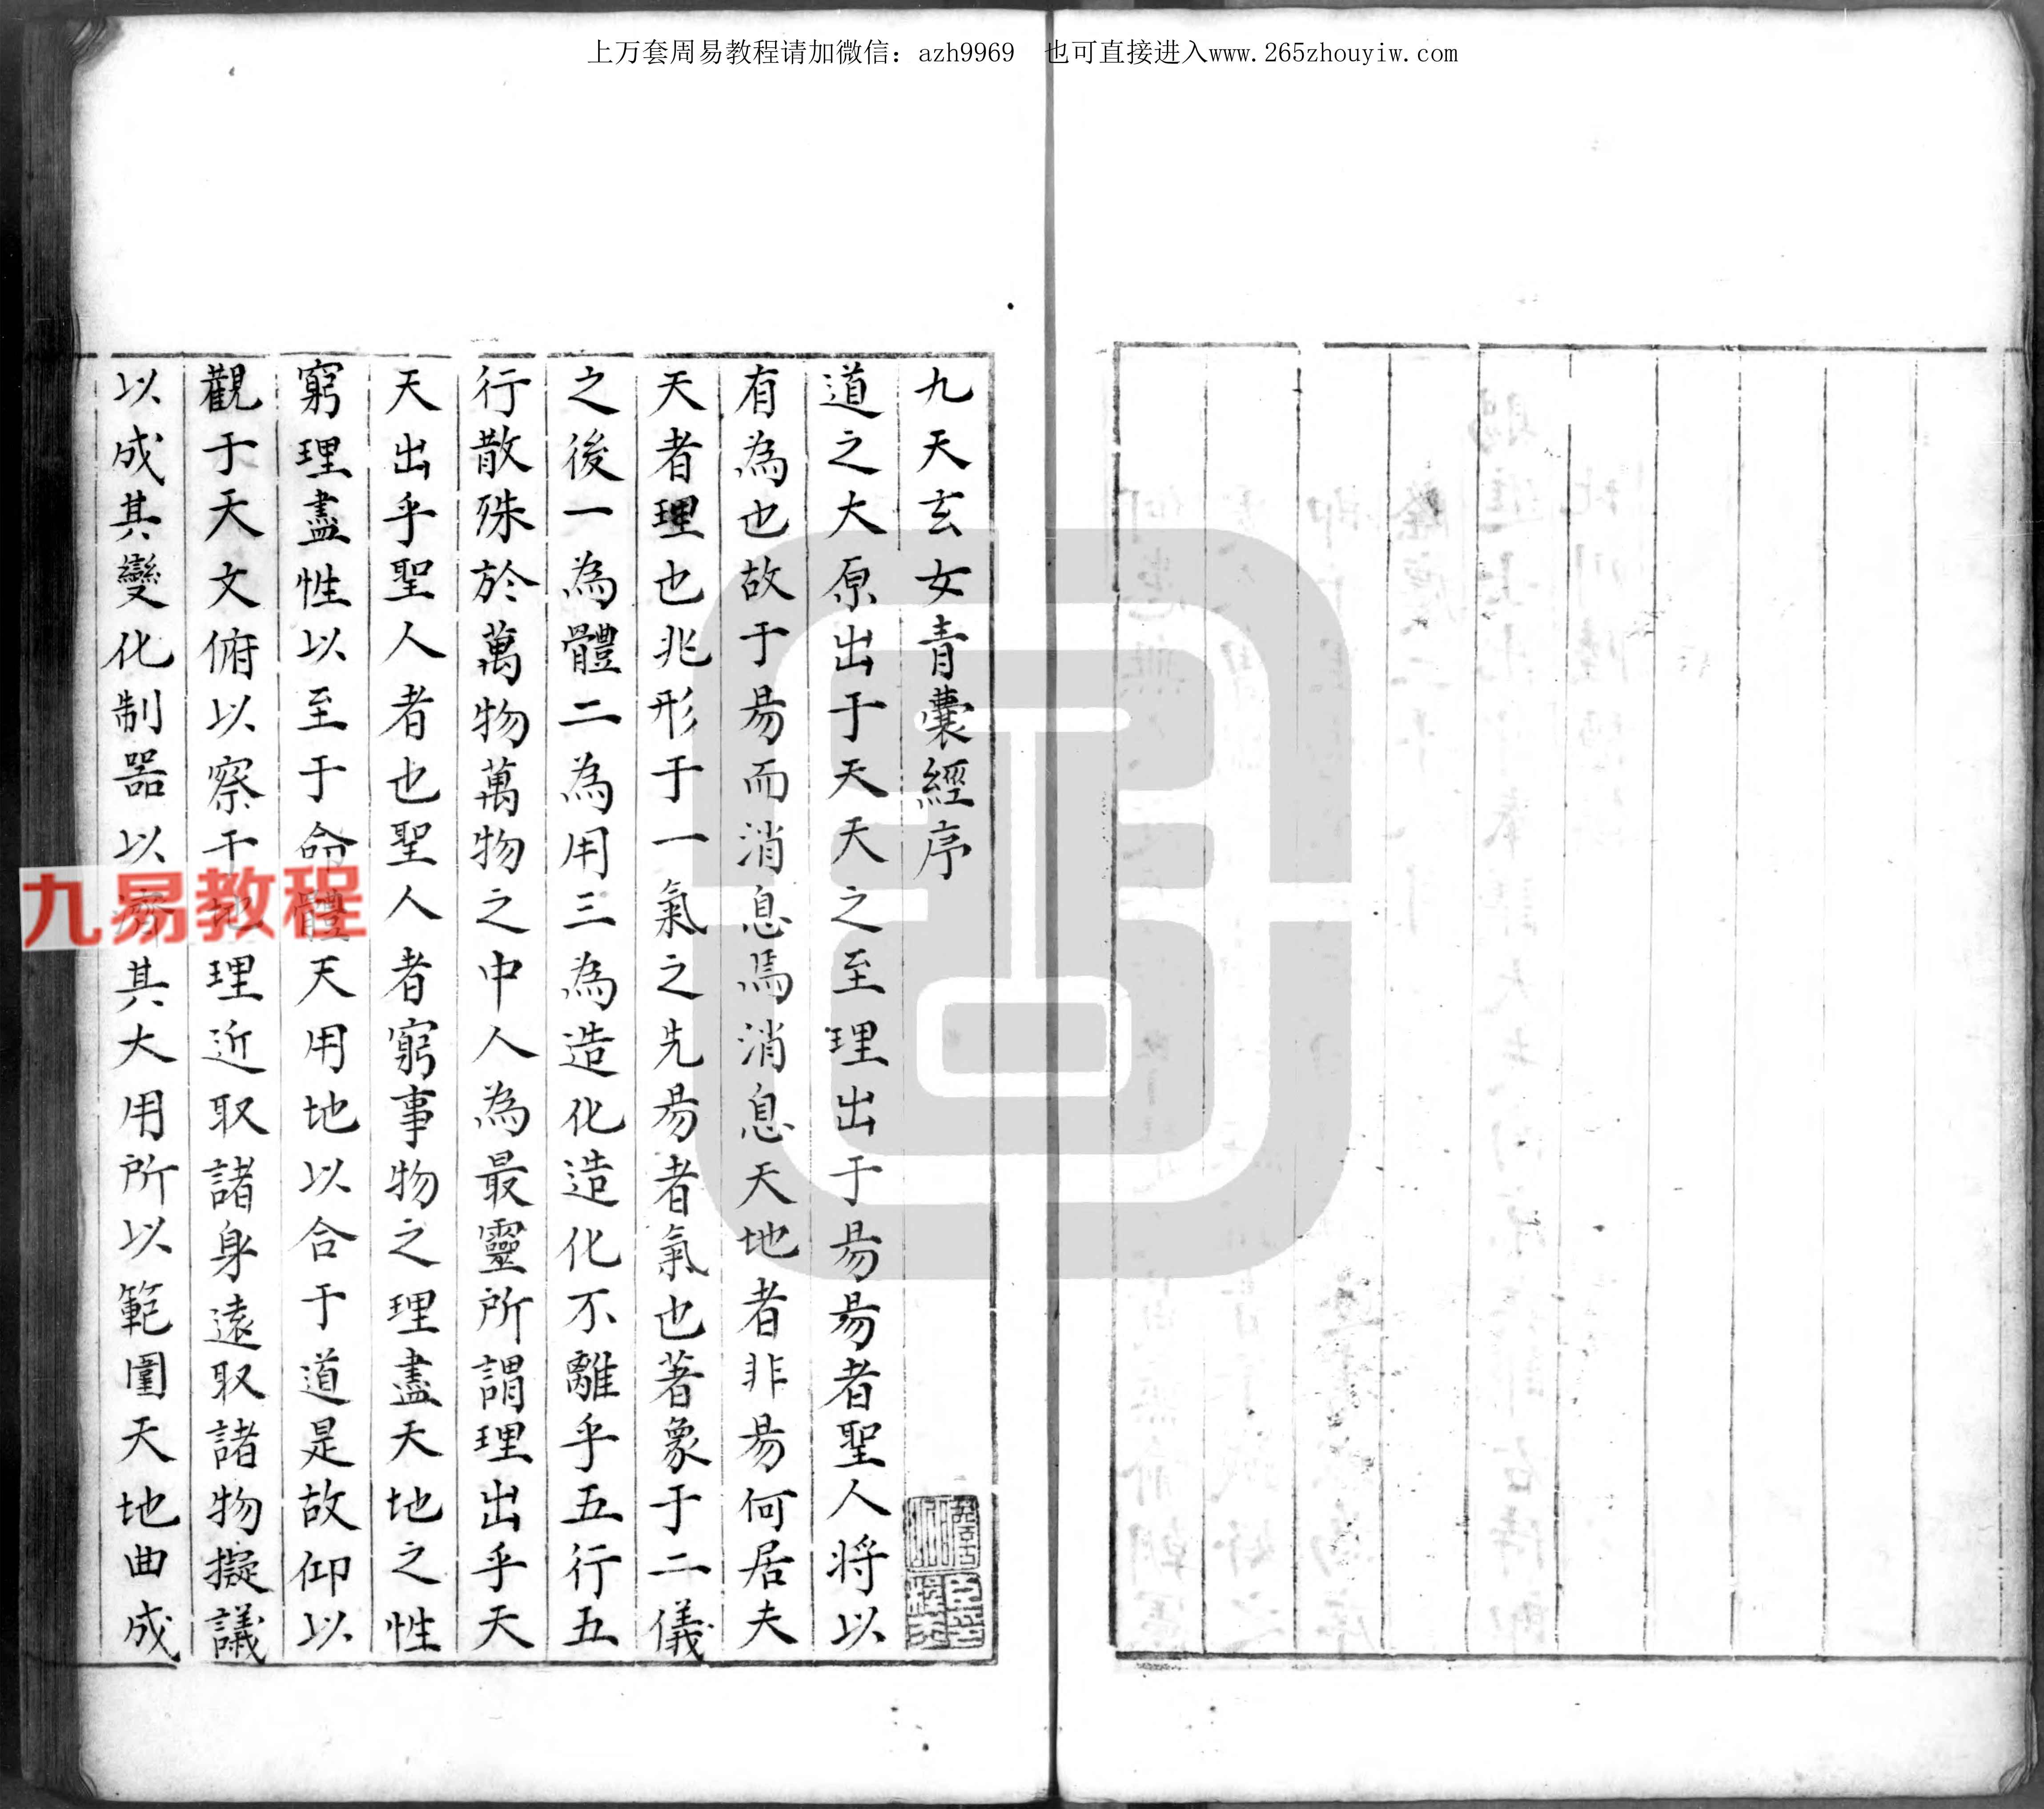 上万套周易教程请加微信：azh9969　也可直接进入www.265zhouyiw.com
九天玄女青囊經序
道之大原出于天天之至理出于昜昜者聖人将以
有為也故于昜而消息焉消息天地者非昜何居夫
天者理也兆形于一氣之先昜者氣也著象于二儀
之後一為體二為用三為造化造化不離乎五行五
行散殊於萬物萬物之中人為最靈所謂理出乎天
天出乎聖人者也聖人者窮事物之理盡天地之性
窮理盡性以至于命體天用地以合于道是故仰以
觀于天文俯以察于地理近取諸身遠取諸物擬議
以成其變化制器以其大用所以範圍天地曲成
九易教程